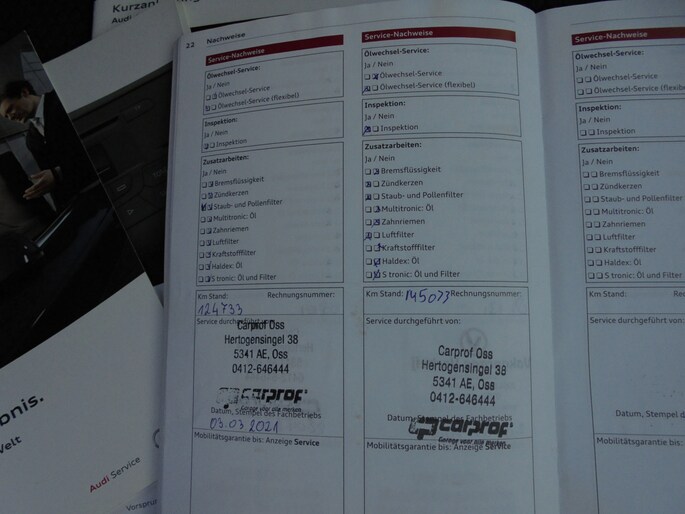 Kurzan
Audi
22 Nachweise
Service-Nachweise
Ölwechsel-Service:
Ja / Nein
Ölwechsel-Service
Ölwechsel-Service (flexibel)
Inspektion:
Ja / Nein
Inspektion
Zusatzarbeiten:
Ja / Nein
Bremsflüssigkeit
Zündkerzen
Staub- und Pollenfilter
Multitronic: Öl
Zahnriemen
Luftfilter
Kraftstofffilter
Haldex: Öl
S tronic: Öl und Filter
Km Stand: Rechnungsnummer:
124733
Service durchgeführt von:
Carprof Oss
Hertogensingel 38
5341 AE, Oss
0412-646444
carprof
Garage voor alle merken
Datum, Stempel des Fachbetriebs
03.03 2021
Mobilitätsgarantie bis: Anzeige Service
Service-Nachweise
Ölwechsel-Service:
Ja / Nein
Ölwechsel-Service
Ölwechsel-Service (flexibel)
Inspektion:
Ja / Nein
Inspektion
Zusatzarbeiten:
Ja / Nein
Bremsflüssigkeit
Zündkerzen
Staub- und Pollenfilter
Multitronic: Öl
Zahnriemen
Luftfilter
Kraftstofffilter
Haldex: Öl
S tronic: Öl und Filter
Km Stand: 145073 Rechnungsnummer:
Service durchgeführt von:
Carprof Oss
Hertogensingel 38
5341 AE, Oss
0412-646444
Datum, Stempel des Fachbetriebs
carprof
Garage voor alle merken
Mobilitätsgarantie bis: Anzeige Service
Service-Nachweise
Ölwechsel-Service:
Ja / Nein
Ölwechsel-Service
Ölwechsel-Service (flexibe
Inspektion:
Ja / Nein
Inspektion
Zusatzarbeiten:
Ja / Nein
Bremsflüssigkeit
Zündkerzen
Staub- und Pollenfilter
Multitronic: Öl
Zahnriemen
Luftfilter
Kraftstofffilter
Haldex: Öl
S tronic: Öl und Filter
Km Stand: Rechnungs
Service durchgeführt von:
Datum, Stempel des
Mobilitätsgarantie bis: An
onis.
Welt
Audi Service
Vorsprun